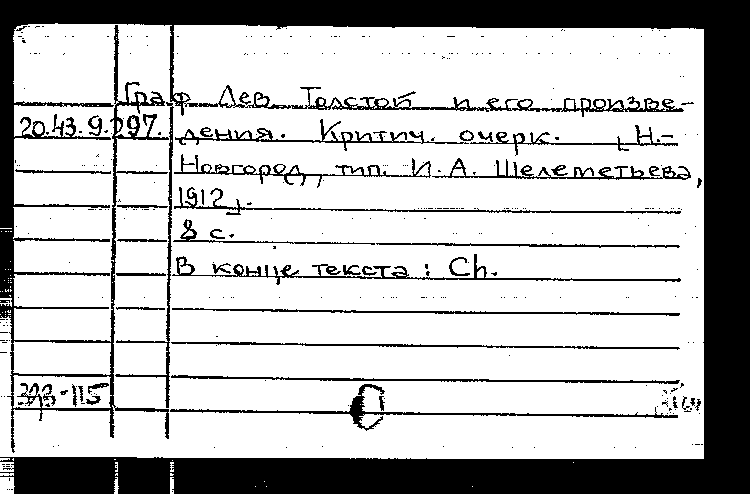 Граф Лев Толстой и его произве-
20.43.9.297. дения. Критич. очерк. [Н.-
Новгород, тип. И. А. Шелеметьева,
1912].
8 с.
В конце текста: Ch.